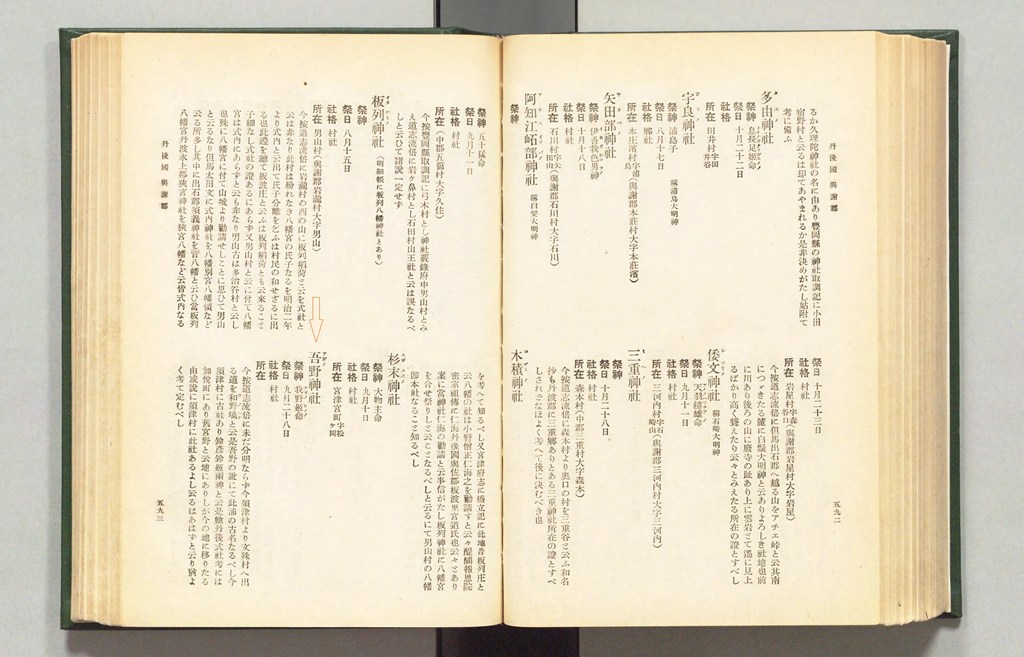 丹後國 與謝郡
るか久理陀神社の名に由あり豐岡縣の神社取調記に小田
宿野村と云るは却てあやまれるか是非決めがたし姑附て
考に備ふ
多由神社
祭神 息長足姬命
祭日 十月二十二日
社格 村社
所在 田井村
宇良神社 稱浦島大明神
祭神 浦島子
祭日 八月十七日
社格 郷社
所在 本庄濱村(與謝郡本莊村大字本莊濱)
矢田部神社
祭神 伊香我色男神
祭日 十月十八日
社格 村社
所在 石川村(與謝郡石川村大字石川)
阿知江峪部神社
祭神
祭日 十月二十三日
社格 村社
所在 岩屋村(與謝郡岩屋村大字岩屋)
今按道志流倍に但馬出石郡へ越る山をアチエ峠と云其南
につゞきたる麓に白鬚大明神と云ありよろしき社地也前
に川あり後ろの山に廢寺の趾あり上に雲岩とて遙に見上
るばかり高く聳えたり云々とみえたる所在の證とすべし
倭文神社 稱石崎大明神
祭神 天羽槌雄命
祭日 九月十一日
社格 村社
所在 三河内村(與謝郡三河内村大字三河内)
三重神社
祭神
祭日 十月二十八日
社格 村社
所在 森本村(中郡三重村大字森本)
今按道志流倍に森本村より奥口の村を三重谷と云ふ和名
抄も丹波郡に三重郷ありとある三重神社所在の證とすべ
しされど なほよく考へて後に決むべき也
木積神社
五九二
丹後國 與謝郡
祭神 五十猛命
祭日 九月十一日
社格 村社
所在 (中郡五箇村大字久住)
今按豐岡縣取調記に弓木村とし神社覈錄府中男山村とみ
え道志流倍に岩ケ鼻村とし石田村山王社と云は誤なるべ
しと云ひて諸說一定せず
板列神社 (明細帳に板列八幡神社とあり)
祭神
祭日 八月十五日
社格 村社
所在 男山村(與謝郡岩瀧村大字男山)
今按道志流倍に岩瀧村の西の山に板列稻荷と云を式社と
云は非なり此村は紛れなき八幡宮の氏子なるを明治二年
より式内と云出て氏子分離を乞ふは村民の和せざるに出
る也此邊を總て板波庄と云ふは板列稻荷とも云來ること
子細なし式社の證あるにあらず又男山村と云に付て八幡
宮は式内にあらずと云も非なり男山古は多治谷村と云し
也殊に八幡宮に付て山城より勸請せしことに思ひて男山
となるなり但馬太田文に式内神社を八幡別宮八幡領など
云る所多し其中に出石郡須義神社を菅八幡と云ひ當板列
八幡宮丹波氷上郡狹宮神社を狹宮八幡など云皆式内なる
を考へて知るべし又宮津府志に橋立記に此地昔板列庄と
云八幡の社は小野僧正仁海之を勸請すと云々醍醐報恩院
密宗祖傳に仁海丹後國與佐郡板波里宮道氏也云々とあり
案に當神社仁海の勸請と云事信がたし板列神社に八幡宮
を合せ祭りしと云ことなるべしと云るにて男山村の八幡
即本社なること知るべし
杉末神社
祭神 大物主命
祭日 九月十日
社格 村社
所在 宮津宮町
吾野神社
祭神 我野姬命
祭日 九月二十八日
社格 村社
所在
今按道志流倍に未だ分明ならず今須津村より文殊村へ出
る道を和野塙と云是吾野の訛にて此浦の古名なるべし今
須津村に古社あり鈴彦鈴姬兩神と云是歟丹後式社考には
加悦町にあり舊宮野と云地にありしが今の地に移りたる
由或說に須津村に此社あるよし云るはあはずと云り猶よ
く考て定むべし
五九三